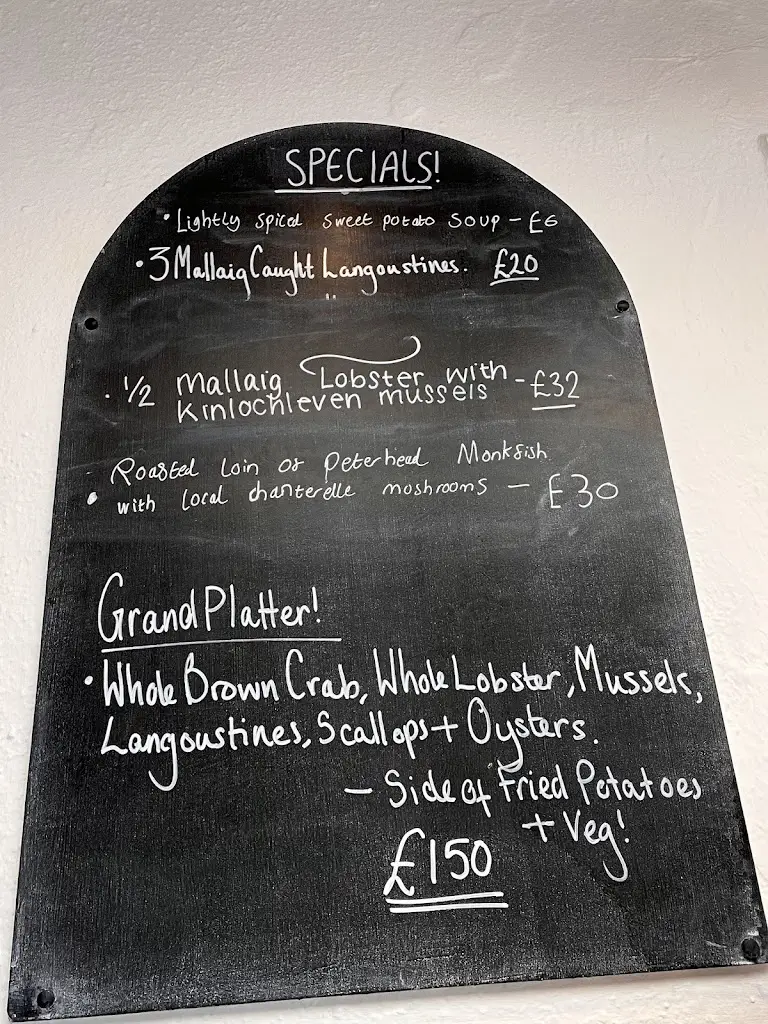 SPECIALS!
• Lightly spiced sweet potato soup - £6
• 3 Mallaig Caught Langoustines. £20
• 1/2 Mallaig Lobster with - £32
Kinlochleven mussels
- Roasted Loin of Peterhead Monkfish
• with local chanterelle moshrooms - £30
Grand Platter!
• Whole Brown Crab, Whole Lobster, Mussels,
Langoustines, Scallops + Oysters.
- Side of Fried Potatoes
+ Veg!
£150